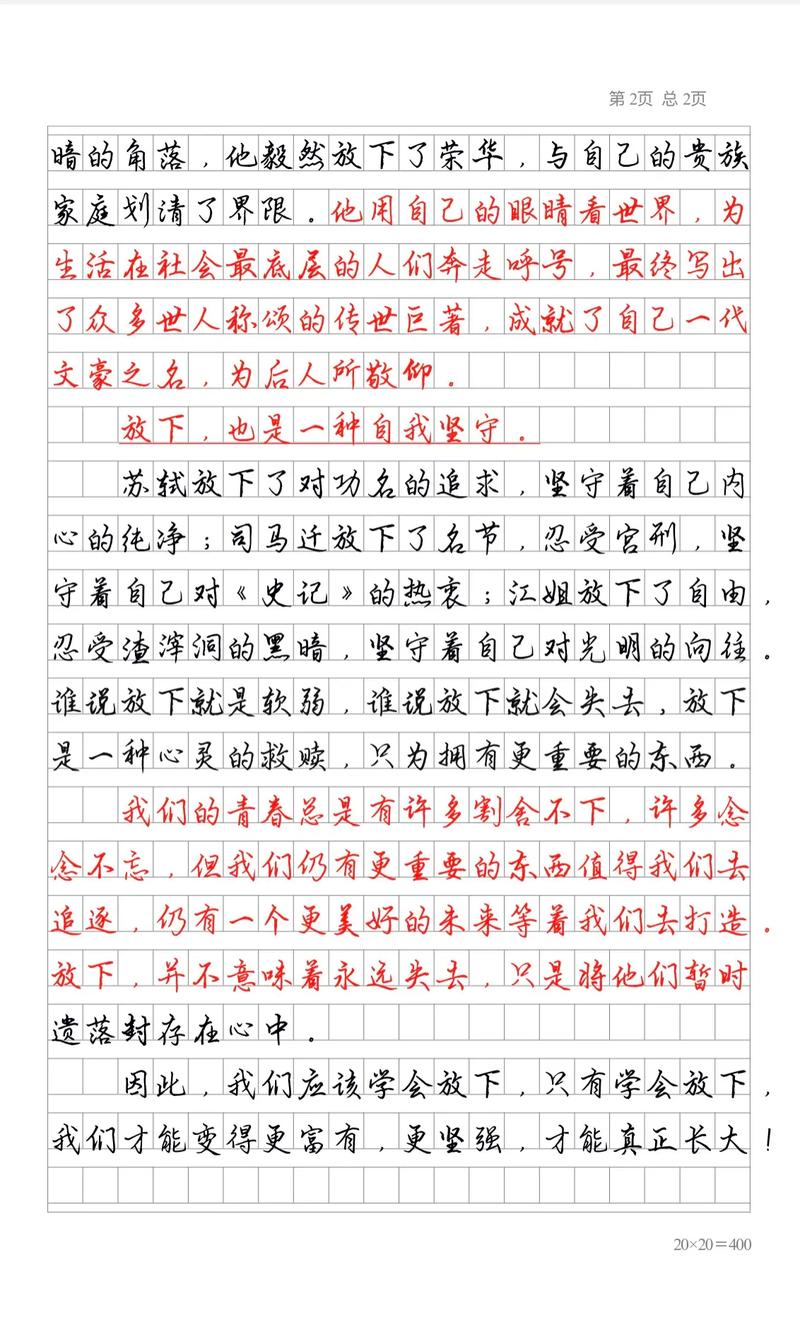 第2页 总2页
暗的角落，他毅然放下了荣华，与自己的贵族
家庭划清了界限。他用自己的眼睛看世界，为
生活在社会最底层的人们奔走呼号，最终写出
了众多世人称颂的传世巨著，成就了自己一代
文豪之名，为后人所敬仰。
放下，也是一种自我坚守。
苏轼放下了对功名的追求，坚守着自己内
心的纯净；司马迁放下了名节，忍受宫刑，坚
守着自己对《史记》的热衷；江姐放下了自由，
忍受渣滓洞的黑暗，坚守着自己对光明的向往。
谁说放下就是软弱，谁说放下就会失去，放下
是一种心灵的救赎，只为拥有更重要的东西。
我们的青春总是有许多割舍不下，许多念
念不忘，但我们仍有更重要的东西值得我们去
追逐，仍有一个更美好的未来等着我们去打造。
放下，并不意味着永远失去，只是将他们暂时
遗落封存在心中。
因此，我们应该学会放下，只有学会放下，
我们才能变得更富有，更坚强，才能真正长大！
20×20=400